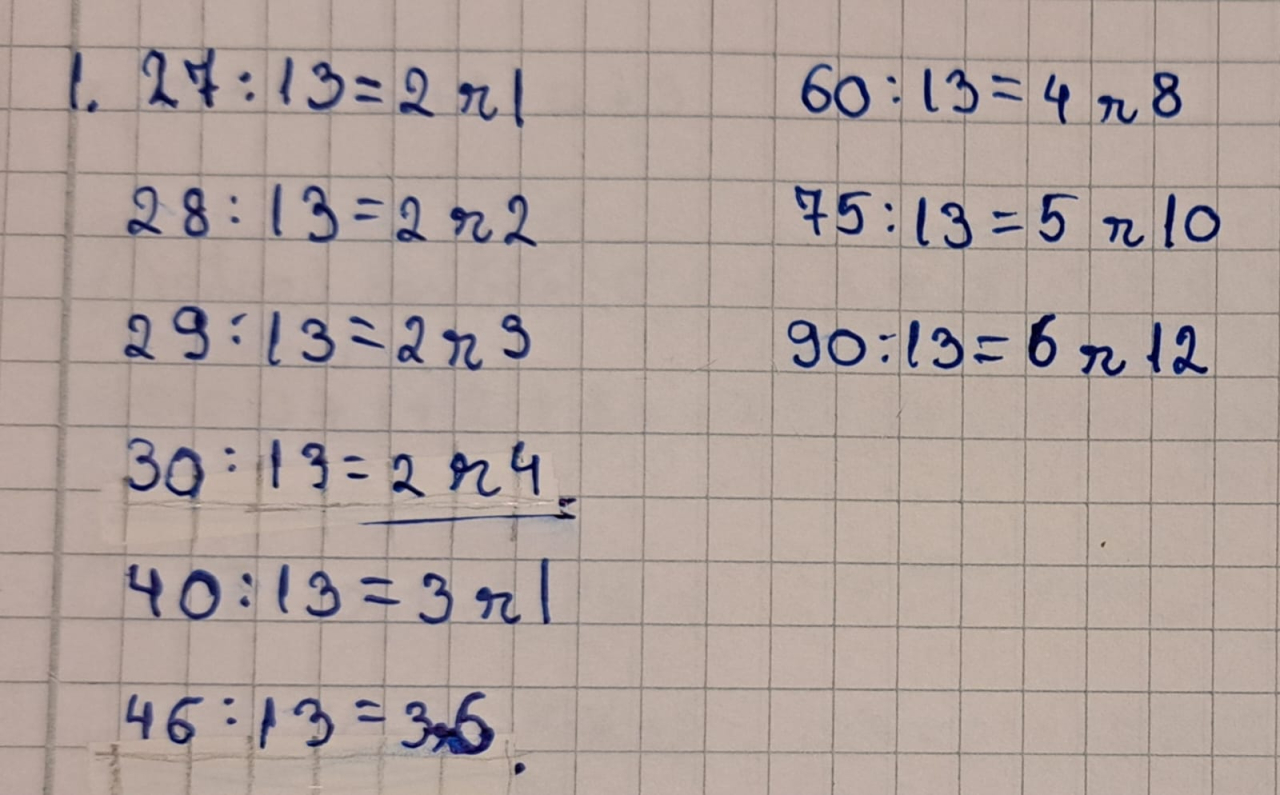 1. 27:13=2 r 1
28:13=2 r 2
29:13=2 r 3
30:13=2 r 4
40:13=3 r 1
46:13=3r6
60:13=4 r 8
75:13=5 r 10
90:13=6 r 12